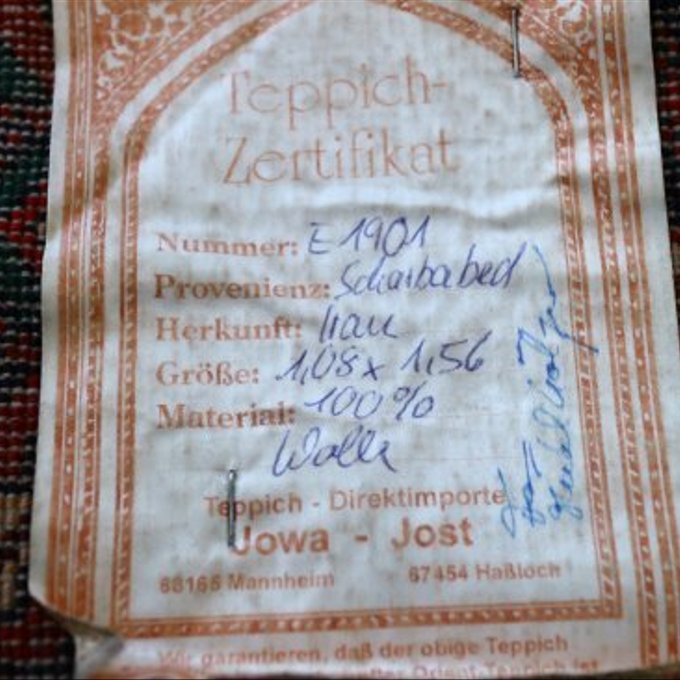 Teppich-
Zertifikat
Nummer: E 1901
Provenienz: Scharbabed
Herkunft: Iran
Größe: 1,08 x 1,56
Material: 100%
Wolle
Teppich - Direktimporte
Jowa - Jost
68165 Mannheim 67454 Haßloch
Wir garantieren, daß der obige Teppich
Orient-Teppich ist